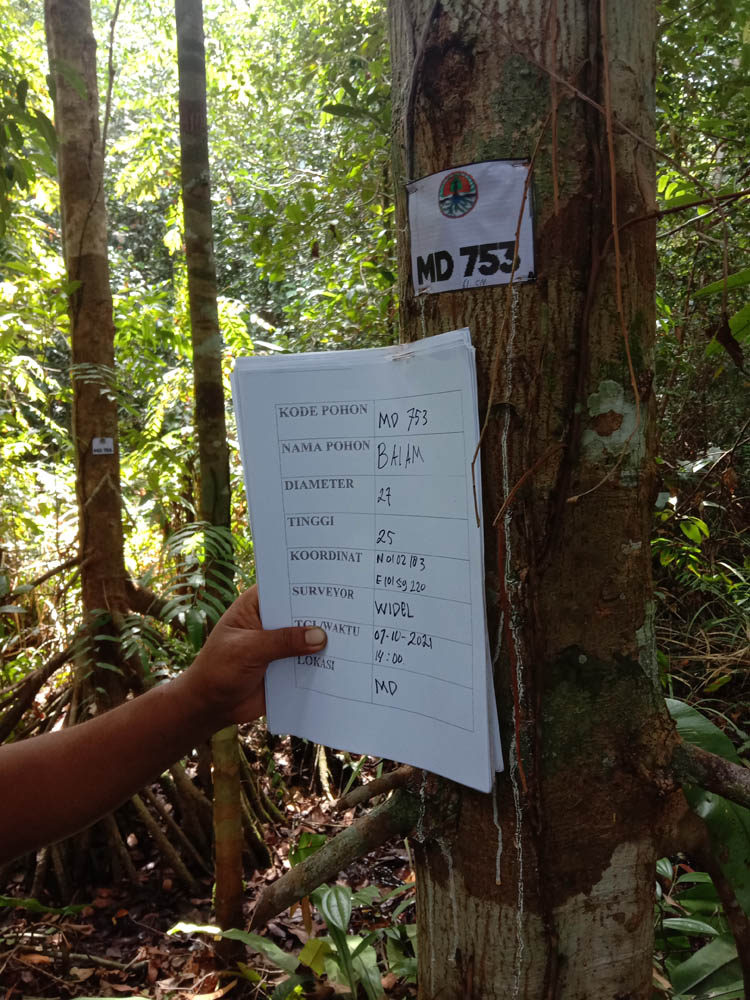 MD 753
KODE POHON MD 753
NAMA POHON BALAM
DIAMETER 27
TINGGI 25
KOORDINAT N 0102183
E 10159220
SURVEYOR WIDEL
TGL/WAKTU 07-10-2021
14:00
LOKASI MD